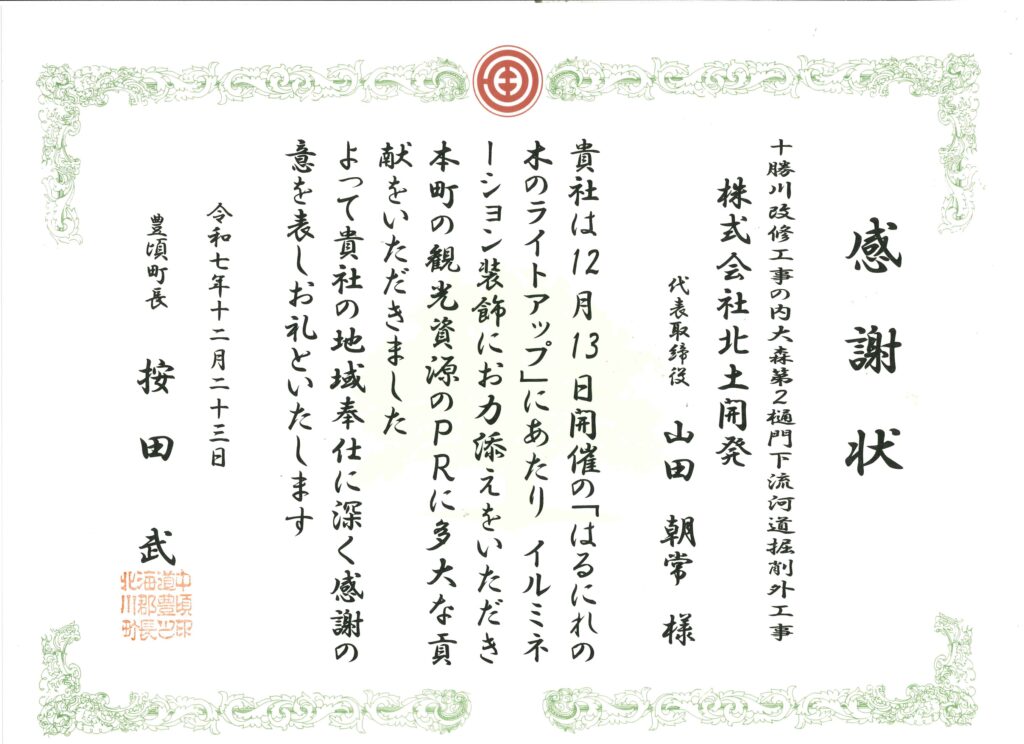 感謝状
十勝川改修工事の内大森第2樋門下流河道掘削外工事
株式会社北土開発
代表取締役 山田 朝常 様
貴社は12月13日開催の「はるにれの
木のライトアップ」にあたり イルミネ
ーション装飾にお力添えをいただき
本町の観光資源のPRに多大な貢
献をいただきました
よって貴社の地域奉仕に深く感謝の
意を表しお礼といたします
令和七年十二月二十三日
豊頃町長 按田 武